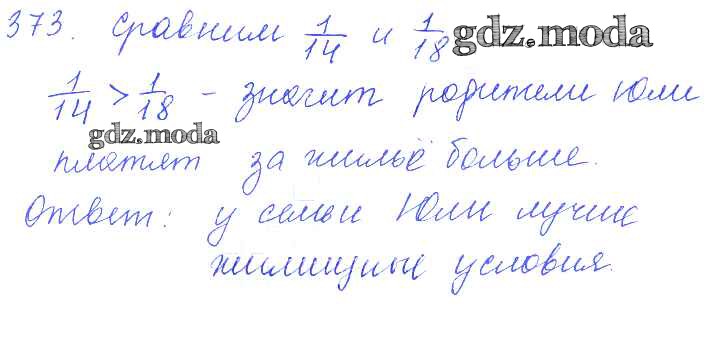 373. Сравним 1/14 и 1/18 gdz.moda
1/14 > 1/18 - значит родители Юли
gdz.moda
платят за жильё больше.
Ответ: у семьи Юли лучшие
жилищные условия.